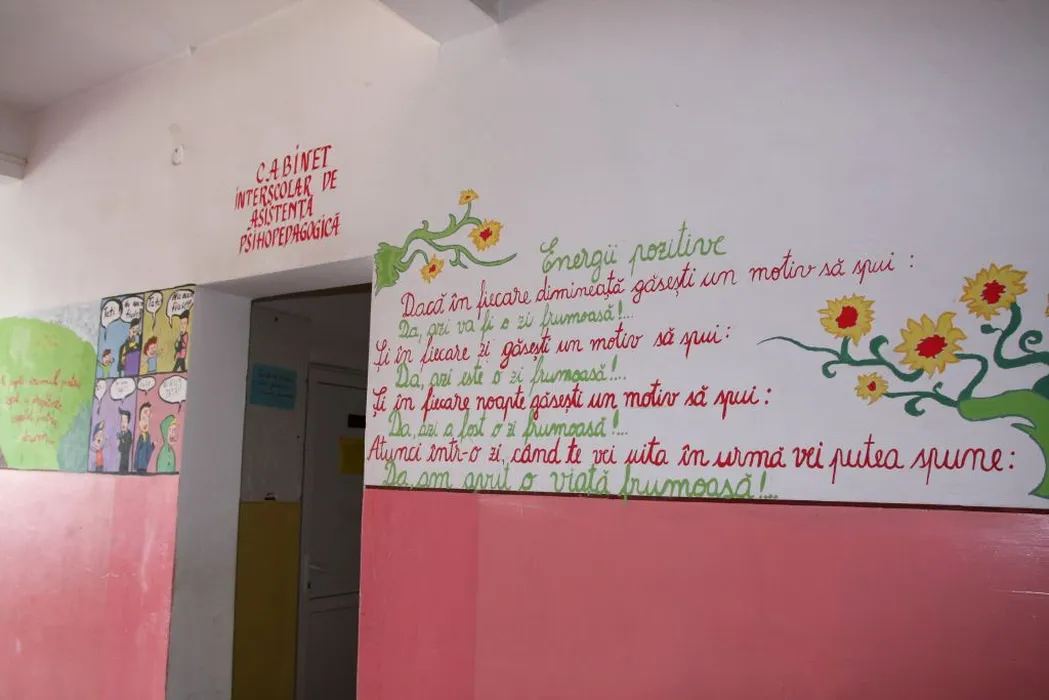 CABINET
INTERȘCOLAR DE
ASISTENȚĂ
PSIHOPEDAGOGICĂ
Energii pozitive
Dacă în fiecare dimineață găsești un motiv să spui :
Da, azi va fi o zi frumoasă!...
Și în fiecare zi găsești un motiv să spui:
Da, azi este o zi frumoasă!...
Și în fiecare noapte găsești un motiv să spui :
Da, azi a fost o zi frumoasă!...
Atunci într-o zi, când te vei uita în urmă vei putea spune:
Da, am avut o viață frumoasă!...